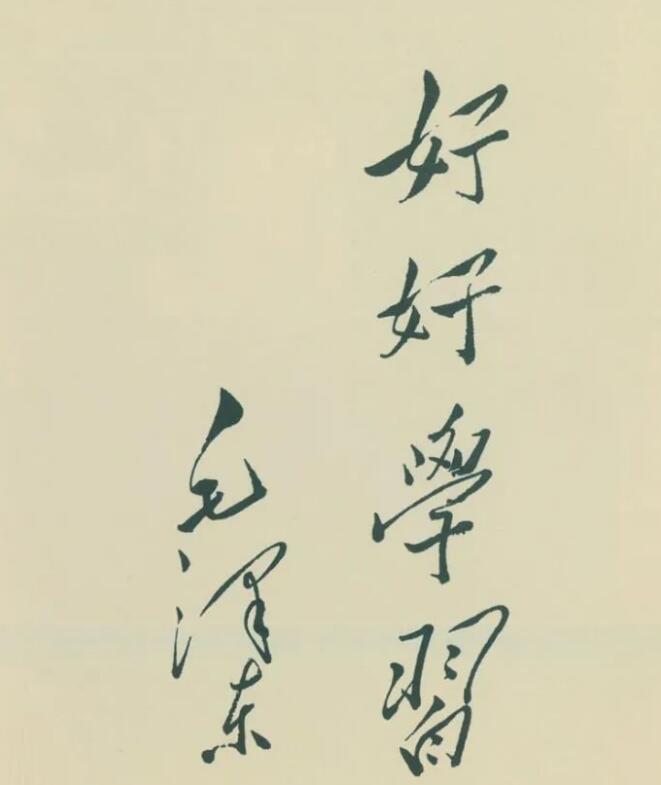 好好學習
毛澤东